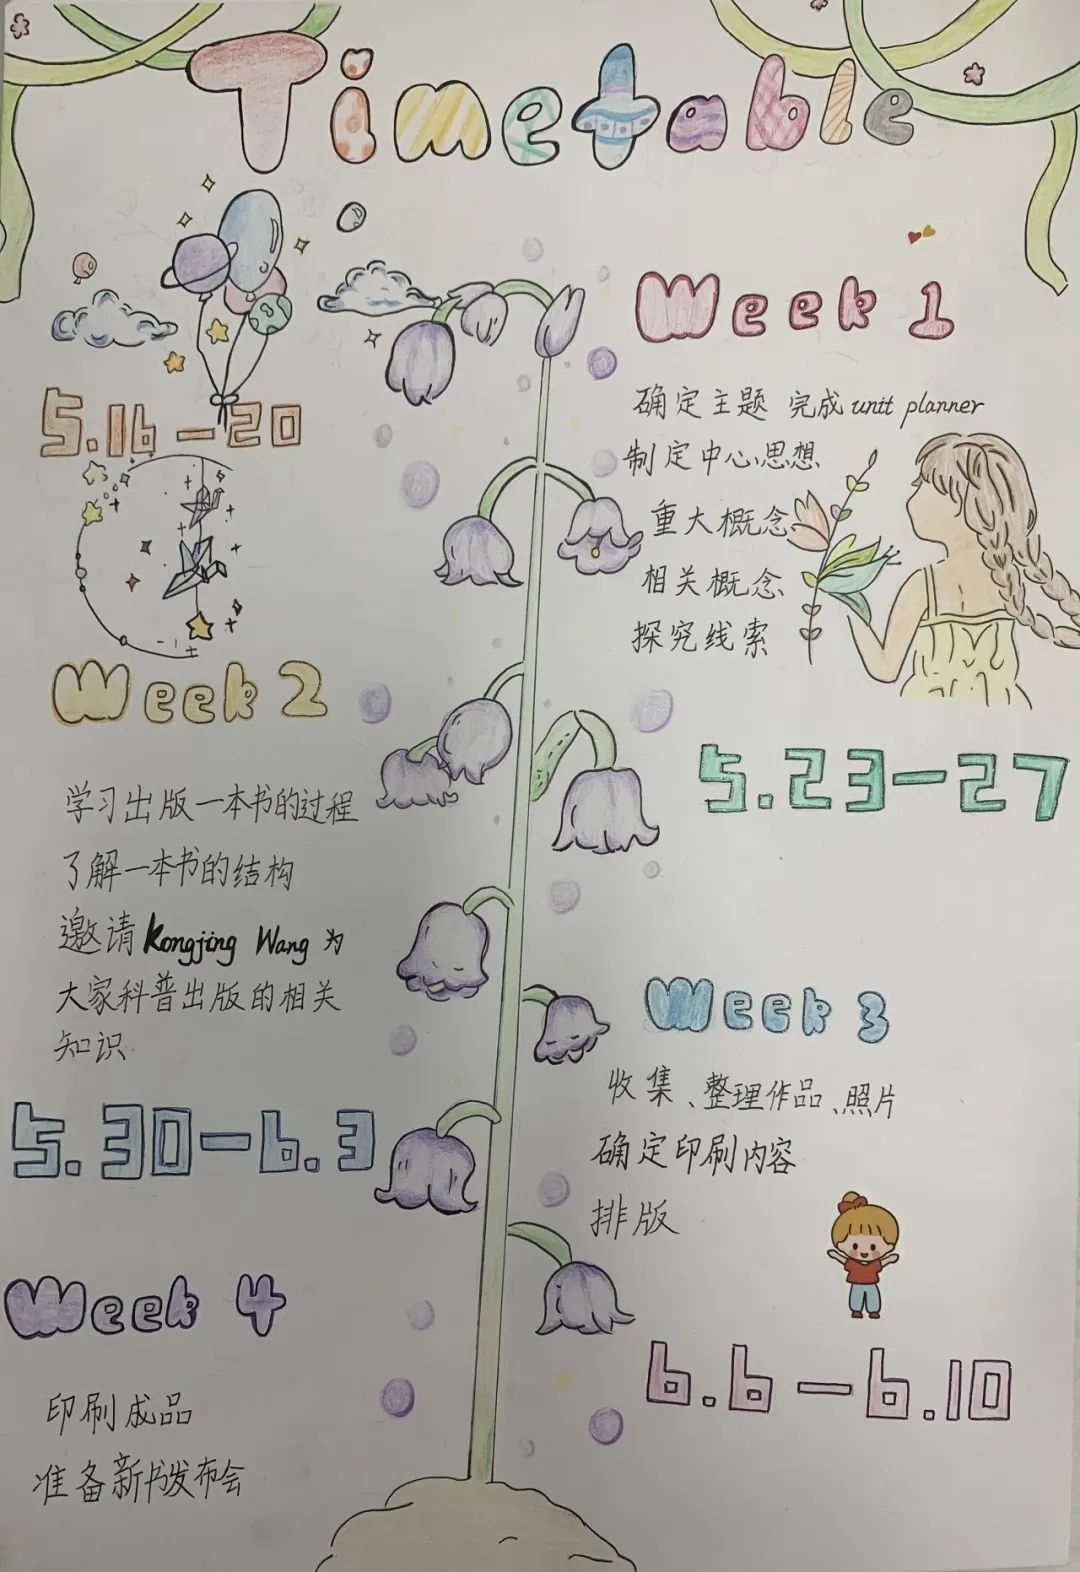 Timetable
Week 1
5.16-20
确定主题 完成 unit planner
制定中心思想
重大概念
相关概念
探究线索
Week 2
5.23-27
学习出版一本书的过程
了解一本书的结构
邀请 Kongjing Wang 为
大家科普出版的相关
知识
Week 3
5.30-6.3
收集、整理作品、照片
确定印刷内容
排版
Week 4
6.6-6.10
印刷成品
准备新书发布会